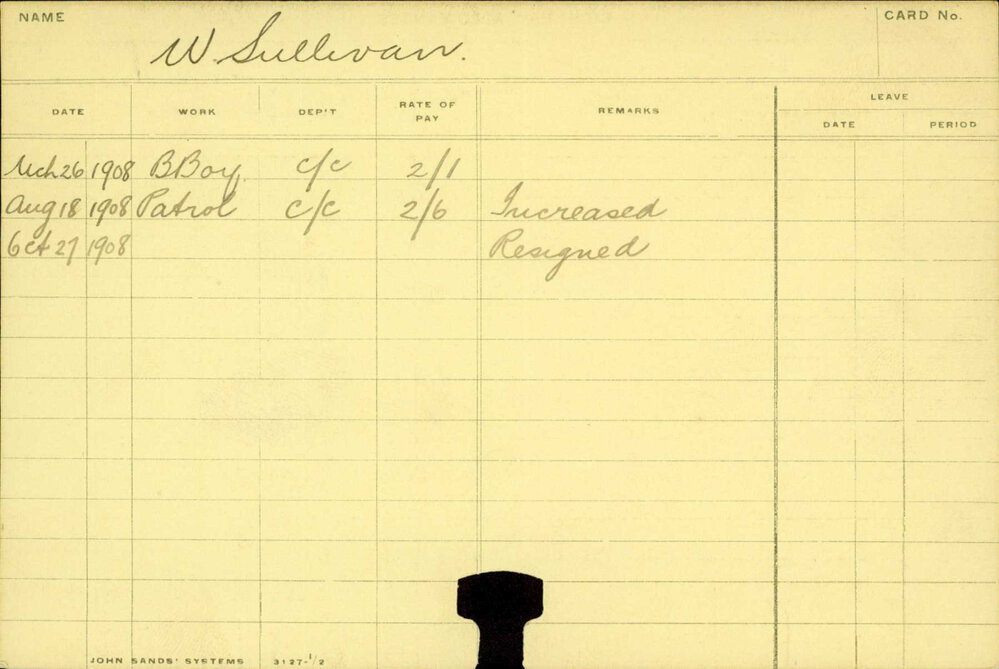 NAME
CARD No.
W. Sullivan.
DATE WORK DEP'T RATE OF PAY REMARKS LEAVE
DATE PERIOD
Mch 26 1908 BBoy. c/c 2/1
Aug 18 1908 Patrol c/c 2/6 Increased
Oct 27 1908 Resigned
JOHN SANDS' SYSTEMS 3127-1/2